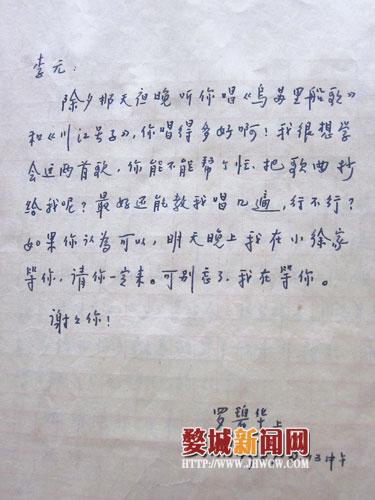 李元：
除夕那天夜晚听你唱《乌苏里船歌》
和《川江号子》，你唱得多好啊！我很想学
会这两首歌，你能不能帮个忙、把歌曲抄
给我呢？最好还能教我唱几遍，行不行？
如果你认为可以，明天晚上我在小徐家
等你，请你一定来。可别忘了，我在等你。
谢々你！
罗碧华上
婺城新闻网
HTTP://WWW.JHWCW.COM
中午